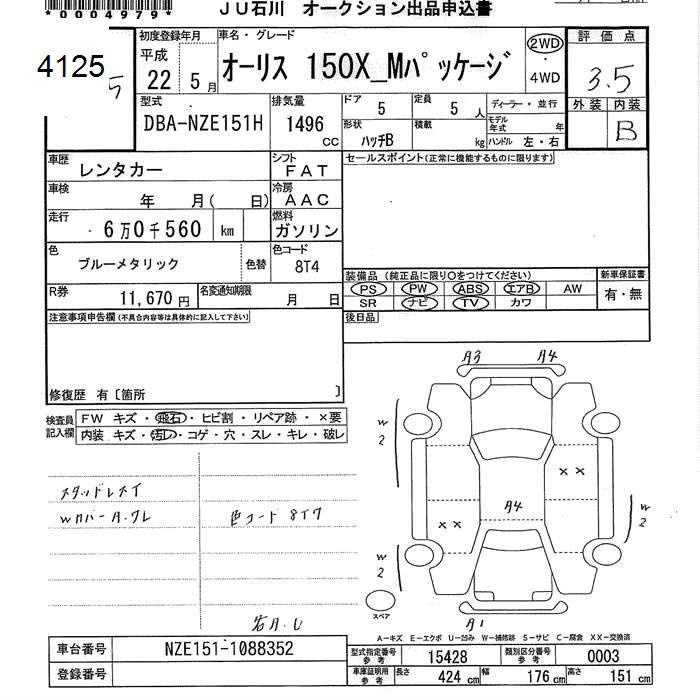 *0004979*
JU石川 オークション出品申込書
4125
5
初度登録年月
平成
22 5月
車名・グレード
オーリス 150X_Mパッケージ
2WD
・
4WD
評価点
3.5
外装 内装
B
型式
DBA-NZE151H
排気量
1496
cc
ドア
5
定員
5人
ディーラー・並行
モデル年式 年
形状
ハッチB
積載
kg
ハンドル 左・右
車歴
レンタカー
シフト
FAT
セールスポイント(正常に機能するものに限ります)
車検
年 月( 日)
冷房
AAC
走行
6万0千560 km
燃料
ガソリン
色
ブルーメタリック
色替
色コード
8T4
装備品(純正品に限り○をつけてください)
新車保証書
PS PW ABS エアB AW
SR ナビ TV カワ
有・無
R券
11,670円
名変通知期限
月 日
注意事項申告欄(不具合内容等は具体的に記入して下さい)
後日品
修復歴 有〔箇所 〕
検査員記入欄
FW キズ・飛石・ヒビ割・リペア跡・×要
内装 キズ・汚レ・コゲ・穴・スレ・キレ・破レ
A3 A4
W2
XX
W2
A4
XX
W2
スペア
A1
スタッドレスイ
Wカバー A.ワレ
色コード 8T7
A-キズ E-エクボ U-凹み W-補修跡 S-サビ C-腐食 XX-交換済
車台番号
NZE151-1088352
登録番号
型式指定番号
参考
15428
類別区分番号
参考
0003
車庫証明用
参考
長さ
424 cm
幅
176 cm
高さ
151 cm